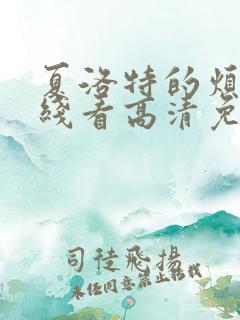 夏洛特的烦
线看高清免
司徒飞扬
未经同意禁止转载